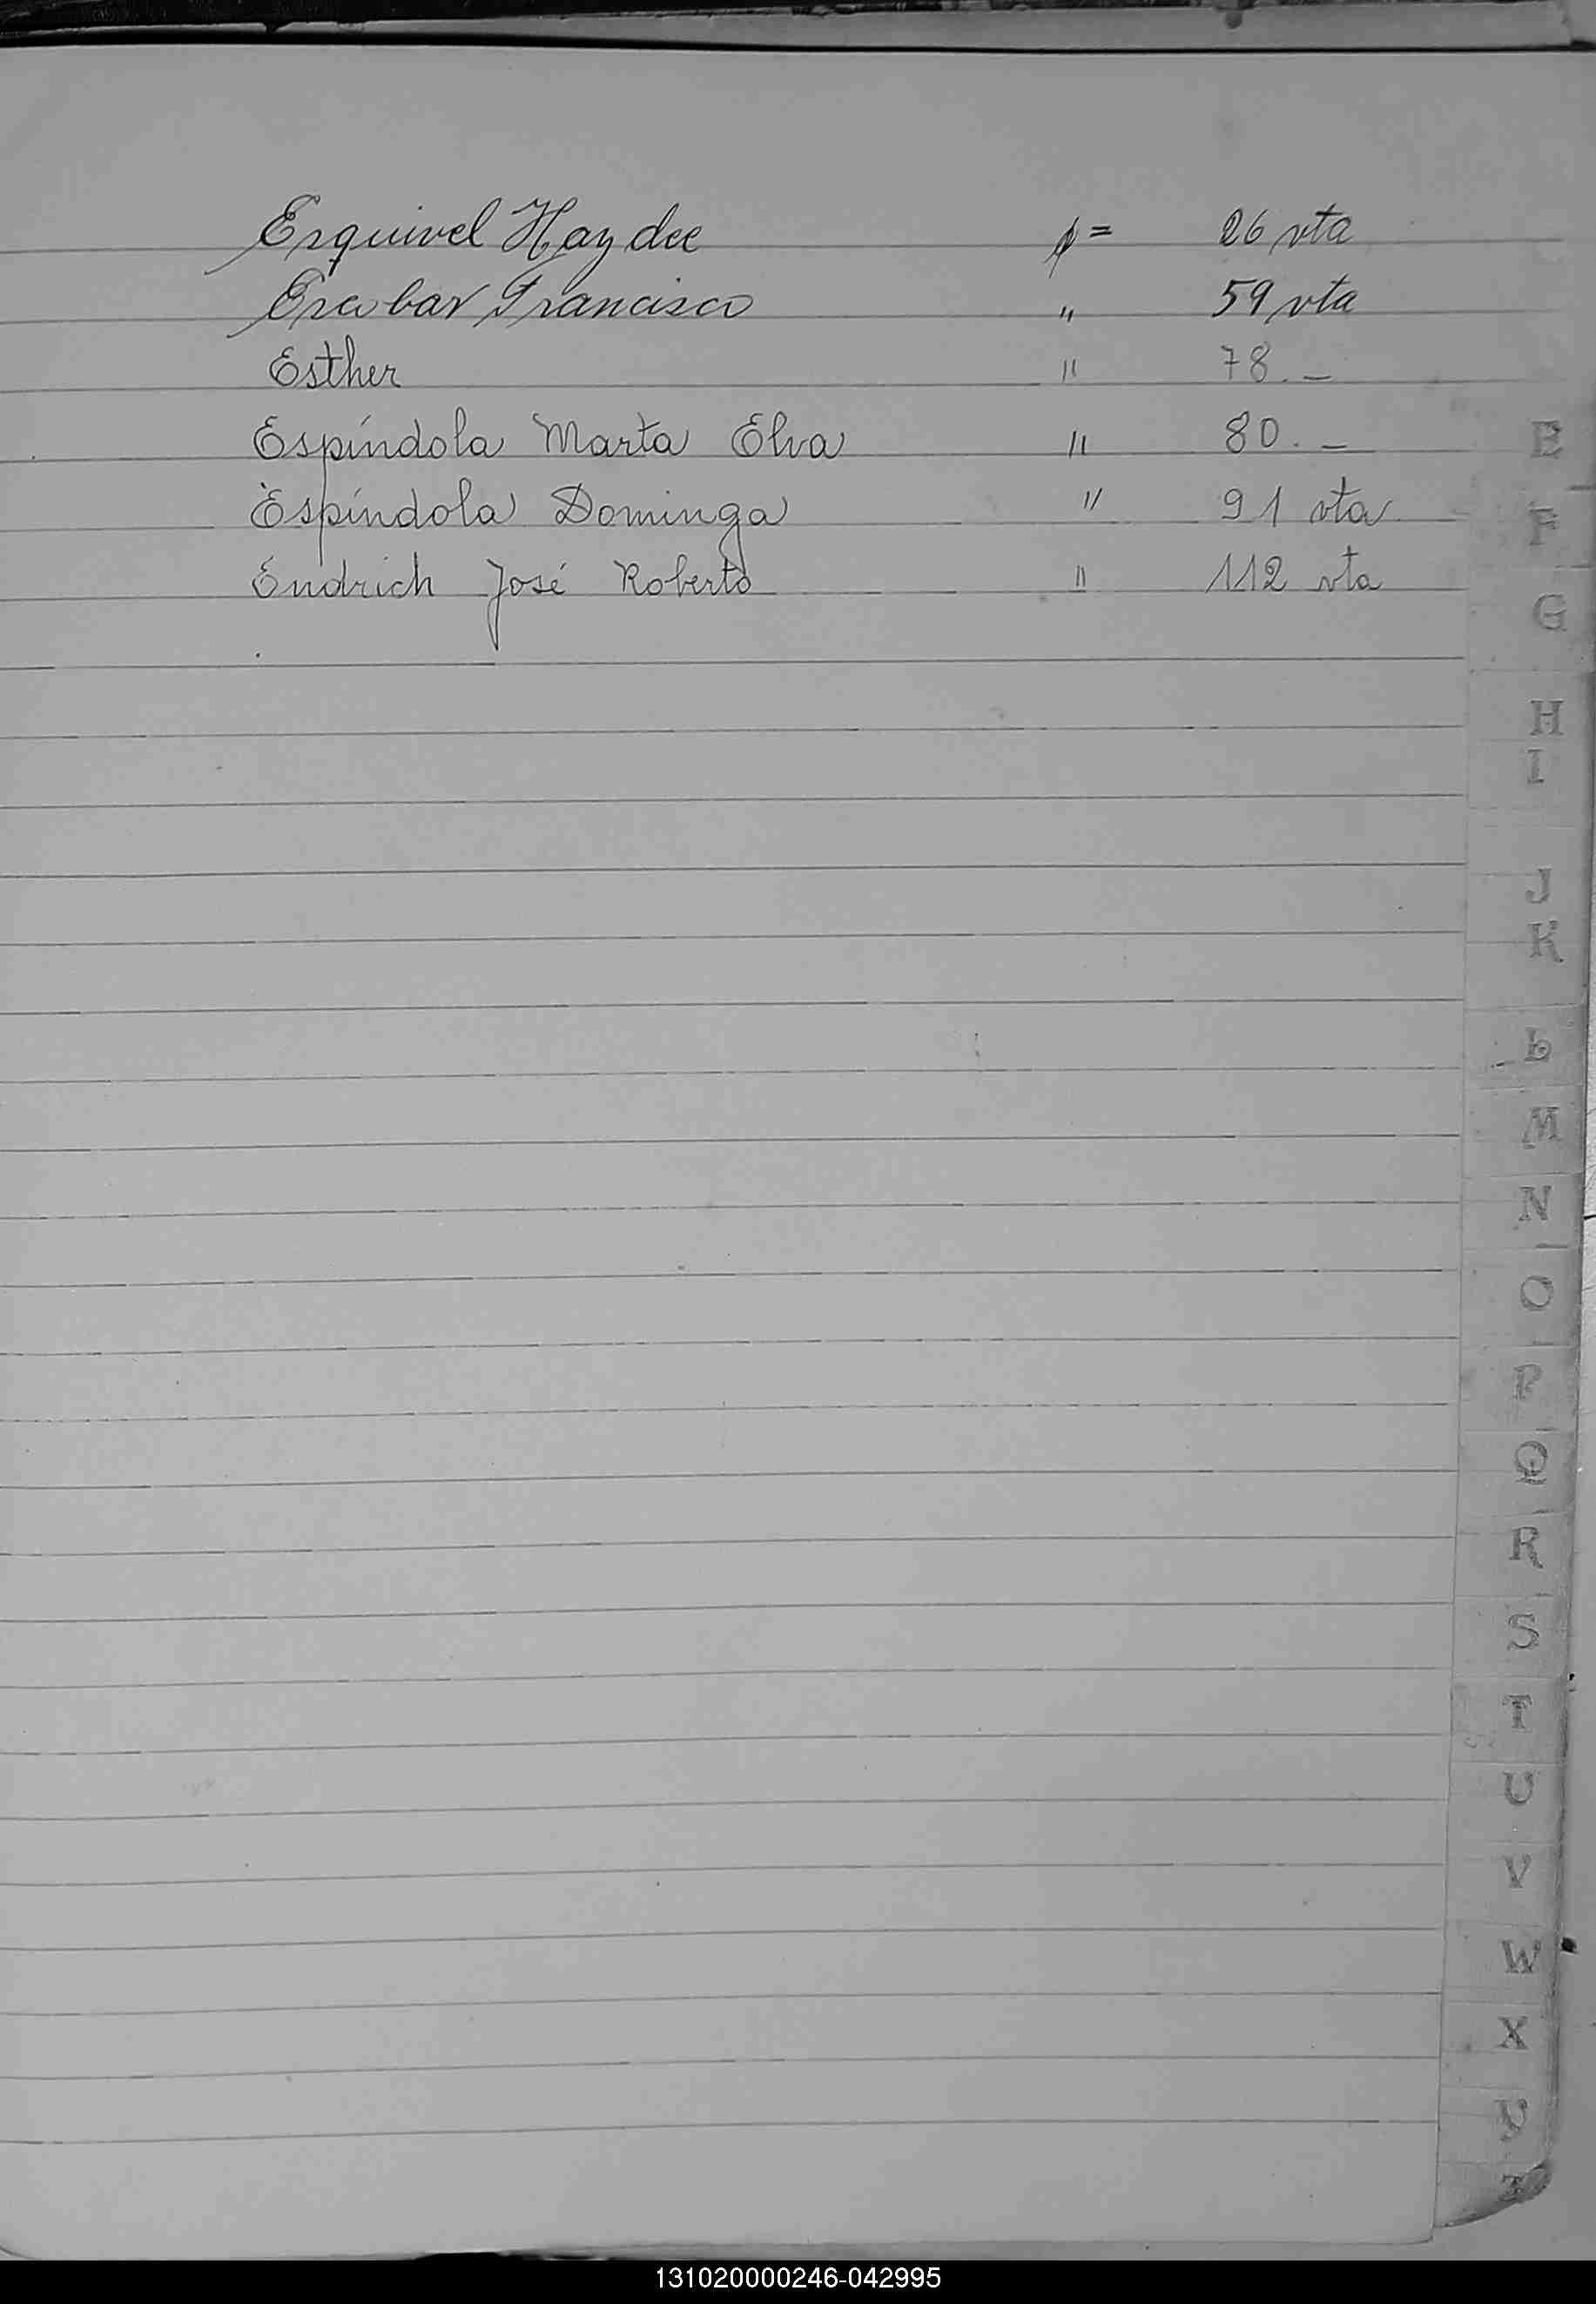 Esquivel Haydee p= 26 vta
Escobar Francisco " 59 vta
Esther " 78.-
Espíndola Marta Elva " 80.-
Espíndola Dominga " 91 vta
Endrich José Roberto " 112 vta
E
F
G
H
I
J
K
L
M
N
O
P
Q
R
S
T
U
V
W
X
Y
Z
131020000246-042995